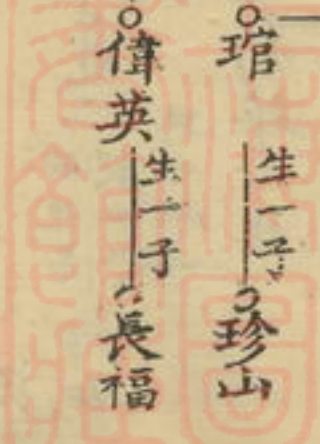 琯 生一子 珍山
偉英 生一子 長福